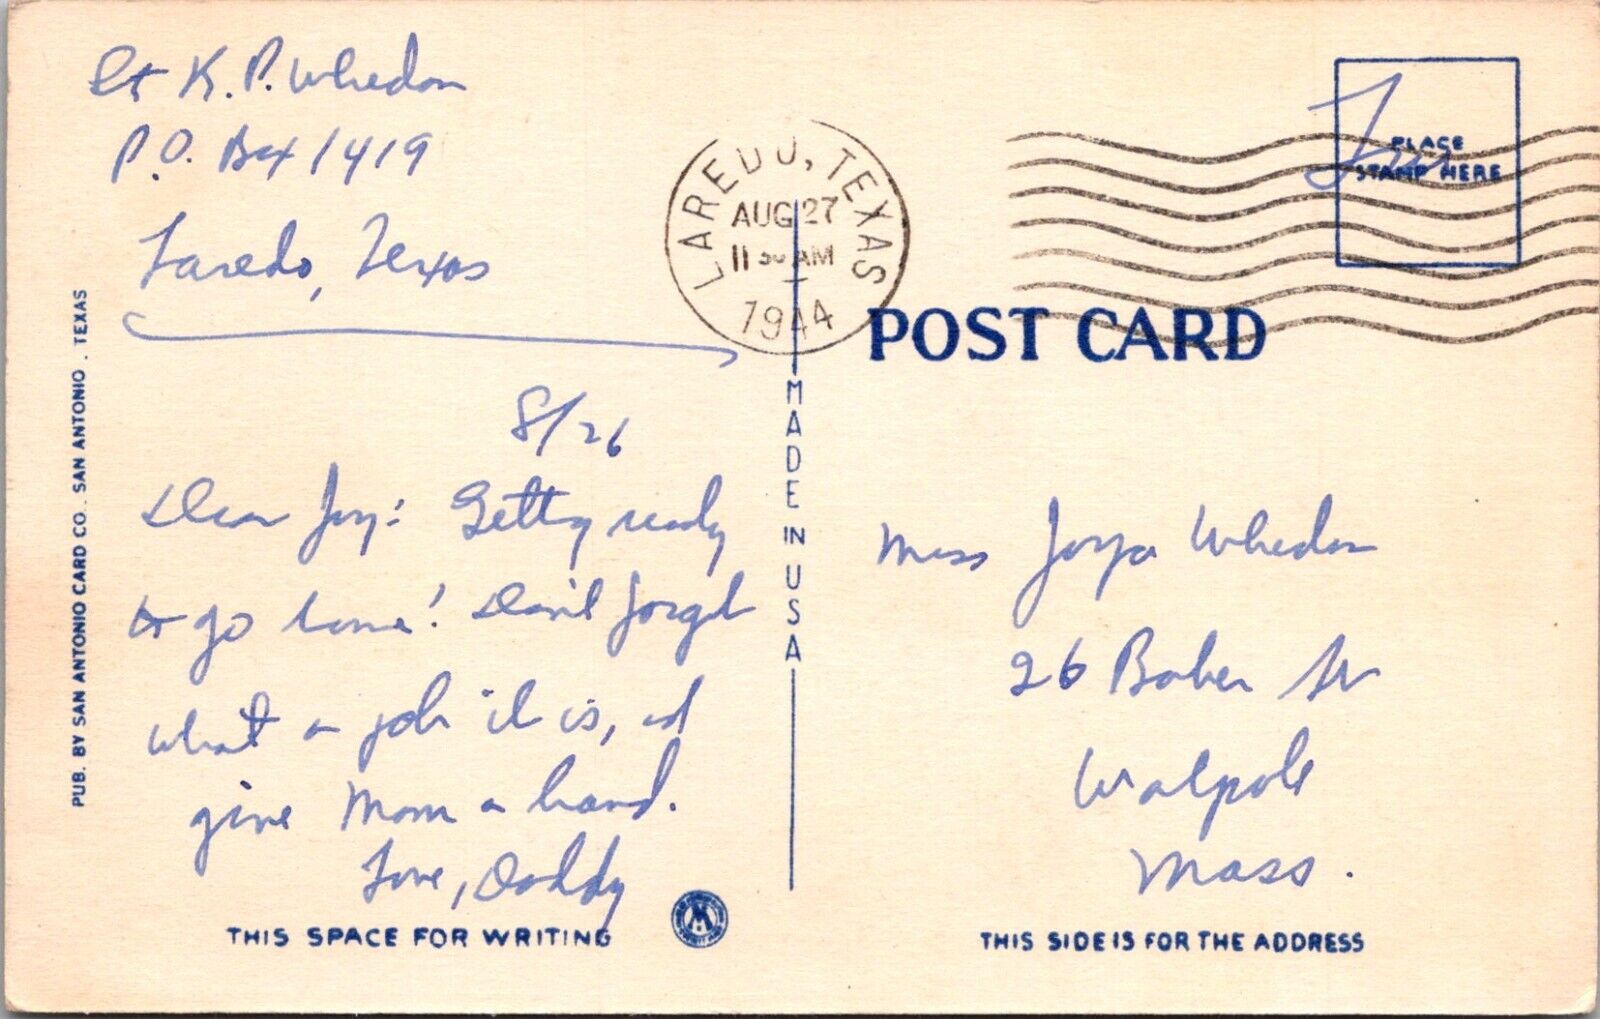 Lt K. P. Whedon
P.O. Box 1419
Laredo, Texas
8/26
Dear Joy: Getting ready
to go home! Don't forget
what a job it is, and
give Mom a hand.
Love, Daddy
THIS SPACE FOR WRITING
PUB. BY SAN ANTONIO CARD CO. SAN ANTONIO . TEXAS
LAREDO, TEXAS
AUG 27
11 30 AM
1944
MADE IN USA
Free
PLACE
STAMP HERE
POST CARD
Miss Joya Whedon
26 Baker St
Walpole
Mass.
THIS SIDE IS FOR THE ADDRESS